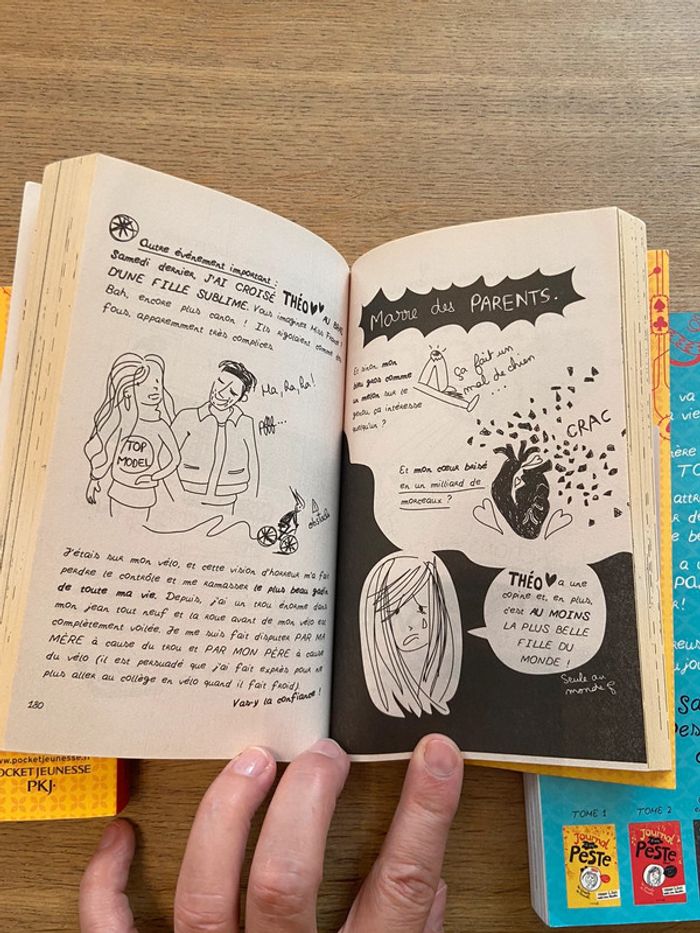 Autre événement important :
Samedi dernier, J'AI CROISÉ THÉO AU BRAS
D'UNE FILLE SUBLIME. Vous imaginez Miss France ?
Bah, encore plus canon ! Ils rigolaient comme des
fous, apparemment très complices.
Ha, ha, ha!
Pfff...
TOP
MODEL
obstacle
J'étais sur mon vélo, et cette vision d'horreur m'a fait
perdre le contrôle et me ramasser le plus beau gadin
de toute ma vie. Depuis, j'ai un trou énorme dans
mon jean tout neuf et la roue avant de mon vélo est
complètement voilée. Je me suis fait disputer PAR MA
MÈRE à cause du trou et PAR MON PÈRE à cause
du vélo (il est persuadé que j'ai fait exprès pour ne
plus aller au collège en vélo quand il fait froid).
Vas-y la confiance !
180
Marre des PARENTS.
Et sinon mon
bleu gros comme
un melon sur le
genou ça intéresse
quelqu'un ?
Ça fait un
mal de chien
....
CRAC
Et mon cœur brisé
en un milliard de
morceaux ?
THÉO a une
copine et, en plus,
c'est AU MOINS
LA PLUS BELLE
FILLE DU
MONDE !
Seule au
monde
www.pocketjeunesse.fr
POCKET JEUNESSE
PKJ·
va
a vie
TO
PA
TOME 1
TOME 2
Journal
Peste
Journal
Peste